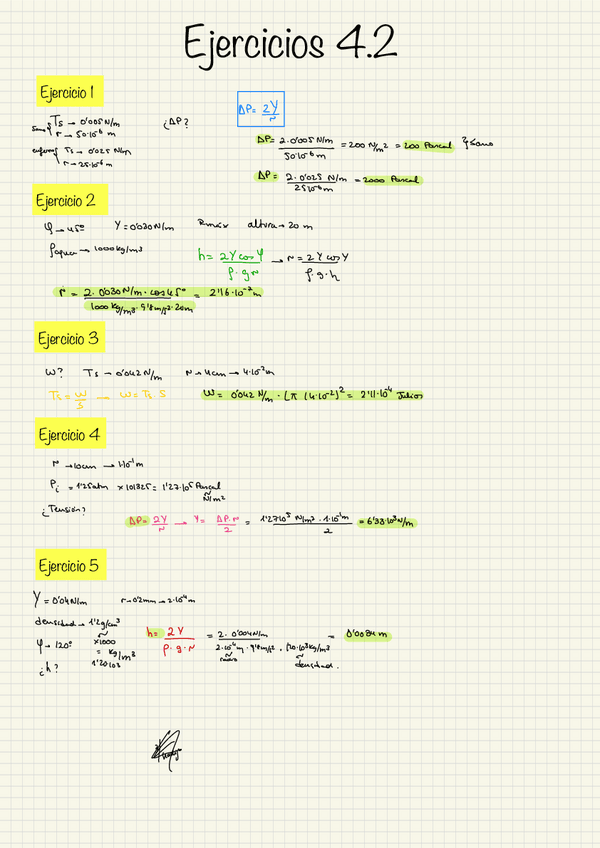 Ejercicios 4.2
Ejercicio 1
sano Ts → 0'005 N/m
r → 50·10⁻⁶ m
¿ΔP?
ΔP = 2γ / r
enfermo Ts → 0'025 N/m
r → 25·10⁻⁶ m
ΔP = 2·0'005 N/m / 50·10⁻⁶ m = 200 N/m² = 200 Pascal sano
ΔP = 2·0'025 N/m / 25·10⁻⁶ m = 2000 Pascal
Ejercicio 2
φ → 45° γ = 0'030 N/m Rmáx altura → 20 m
ρagua → 1000 kg/m³
h = 2γ cos φ / ρ·g·r → r = 2γ cos φ / ρ·g·h
r = 2·0'030 N/m · cos 45° / 1000 kg/m³ · 9'8 m/s² · 20m = 2'16·10⁻² m
Ejercicio 3
W? Ts → 0'042 N/m r → 4cm → 4·10⁻² m
Ts = W / S → W = Ts·S
W = 0'042 N/m · (π (4·10⁻²)² = 2'11·10⁻⁴ Julios
Ejercicio 4
r → 10cm → 1·10⁻¹ m
Pi = 1'25atm × 101325 = 1'27·10⁵ Pascal
N/m²
¿Tensión?
ΔP = 2γ / r → γ = ΔP·r / 2 = 1'27·10⁵ N/m² · 1·10⁻¹ m / 2 = 6'33·10³ N/m
Ejercicio 5
γ = 0'04 N/m r → 0'2mm → 2·10⁻⁴ m
densidad → 1'2g/cm³
×1000
= kg/m³
1'20·10³
φ → 120°
¿h?
h = 2γ / ρ·g·r = 2·0'004 N/m / 2·10⁻⁴ m · 9'8 m/s² · 1'20·10³ kg/m³ = 0'0034 m
radio densidad.